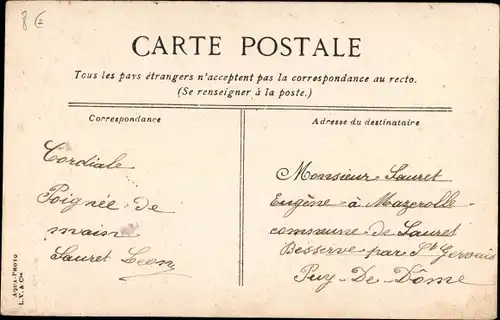 8€
CARTE POSTALE
Tous les pays étrangers n'acceptent pas la correspondance au recto.
(Se renseigner à la poste.)
Correspondance
Cordiale
Poignée de
main
Sauret Leon
Adresse du destinataire
Monsieur Sauret
Eugène à Mazerolle
commune de Sauret
Besserve par St Gervais
Puy-De-Dôme
AQUA-PHOTO
L.V. & Cie